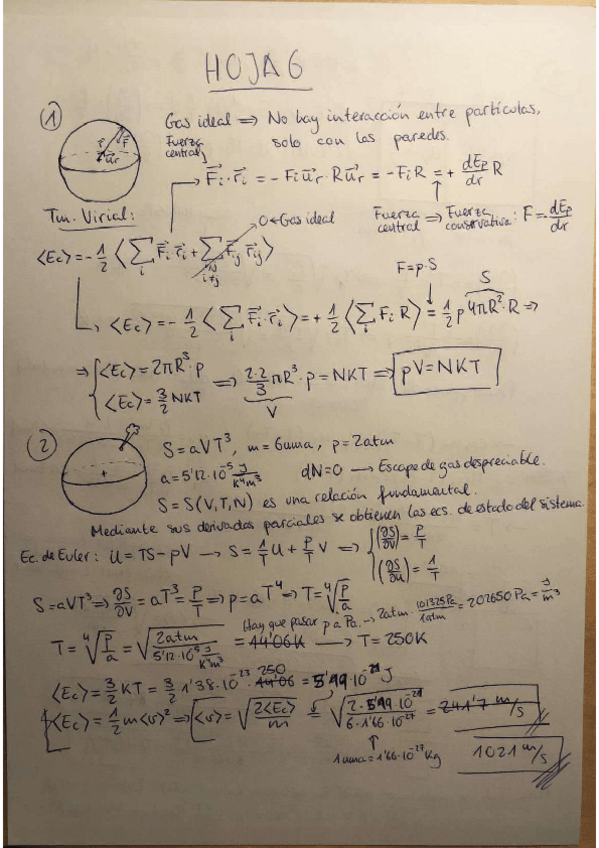 HOJA 6
① Gas ideal ⇒ No hay interacción entre partículas,
solo con las paredes.
r⃗ F⃗ u⃗r
Fuerza central
F⃗i·r⃗i = -Fi u⃗r · R u⃗r = -Fi R = + dEp/dr R
Tm. Virial:
0 ← Gas ideal
Fuerza central ⇒ Fuerza conservativa: F = -dEp/dr
<Ec> = -1/2 < ∑i F⃗i r⃗i + ∑i≠j F⃗ij r⃗ij >
F = p·S
S
<Ec> = -1/2 < ∑i F⃗i·r⃗i > = + 1/2 < ∑i Fi R > = 1/2 p 4πR²·R ⇒
⇒ { <Ec> = 2πR³·p
<Ec> = 3/2 NKT ⇒ 2·2/3 πR³·p = NKT ⇒ pV = NKT
V
② S = aVT³, m = 6uma, p = 2atm
a = 5'12·10⁻⁵ J/K⁴m³ dN=0 → Escape de gas despreciable.
S = S(V,T,N) es una relación fundamental.
Mediante sus derivadas parciales se obtienen las ecs. de estado del sistema.
Ec. de Euler: U = TS - pV → S = 1/T U + P/T V ⇒ { (∂S/∂V) = P/T
(∂S/∂U) = 1/T
S = aVT³ ⇒ ∂S/∂V = aT³ = P/T ⇒ p = aT⁴ ⇒ T = ⁴√(P/a)
Hay que pasar p a Pa. → 2atm · 101325Pa/1atm = 202650 Pa = J/m³
T = ⁴√(P/a) = √(2atm / 5'12·10⁻⁵ J/K⁴m³) = 44'06K → T = 250K
<Ec> = 3/2 KT = 3/2 1'38·10⁻²³ · 44'06 250 = 5'99·10⁻²¹ J
<Ec> = 1/2 m<v>² ⇒ <v> = √(2<Ec>/m) = √(2·5'99·10⁻²¹ / 6·1'66·10⁻²⁷) = 241'7 m/s
1uma = 1'66·10⁻²⁷ Kg
1021 m/s